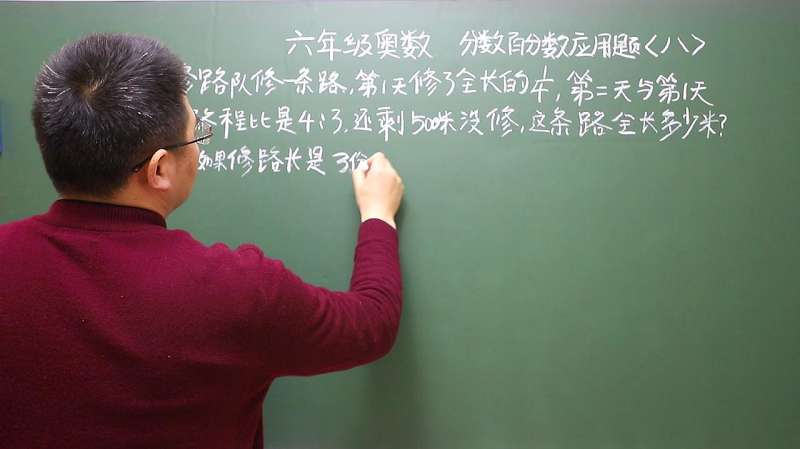 六年级奥数 分数百分数应用题〈八〉
修路队修一条路,第1天修了全长的1/4,第二天与第1天
路程比是4:3,还剩500米没修,这条路全长多少米?
如果修路长是3份